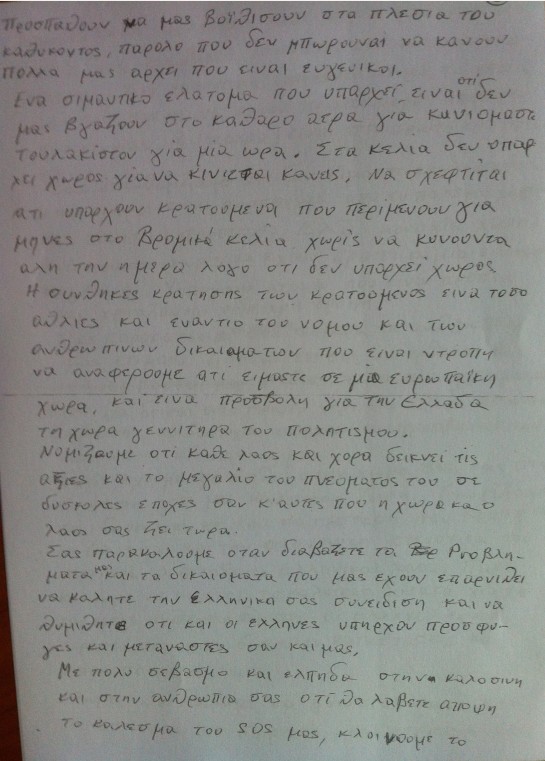 προσπαθουν να μας βοϊθισουν στα πλεσια του
καθυκοντος, παρολο που δεν μπωρουναι να κανουν
πολλα μας αρχει που ειναι ευγενικοι.
Ενα σιμαντικο ελατομα που υπαρχει ειναι οτι δεν
μας βγαζουν στο καθαρο αερα για κανιομαστε
τουλακιστον για μια ωρα. Στα κελια δεν υπαρ
χει χωρος για να κινιεται κανας. Να σχεφτιται
οτι υπαρχουν κρατουμενοι που περιμενουν για
μηνες στο βρομικα κελια χωρις να κυνουντα
αλη την ημερα λογο οτι δεν υπαρχει χωρος.
Η συνθηκες κρατησης των κρατουμενος εινα τοσο
αθλιες και εναντιο του νομου και των
ανθρωπινων δικαιοματων που ειναι ντροπη
να αναφερουμε οτι ειμαστε σε μια ευρωπαϊκη
χωρα, και εινα προσβολη για την Ελλαδα
τη χωρα γεννιτηρα του πολητισμου.
Νομιζουμε οτι καθε λαος και χορα δεικνει τις
αξιες και το μεγαλιο του πνευματος του σε
δυσκολες εποχες σαν κ'αυτες που η χωρα κα ο
λαος σας ζει τωρα.
Σας παρακαλουμε οταν διαβαζετε τα προβλη-
ματα μας και τα δικαιοματα που μας εχουν επαρνιθει
να καλητε την Ελληνικη σας συνειδιση και να
θυμιθητε οτι και οι ελληνες υπηρχον προσφυ-
γες και μεταναστες σαν και μας,
Με πολυ σεβασμο και ελπηδα στην καλοσινη
και στην ανθρωπια σας οτι θα λαβετε αποψη
το καλεσμα του SOS μας, κλοινουμε το